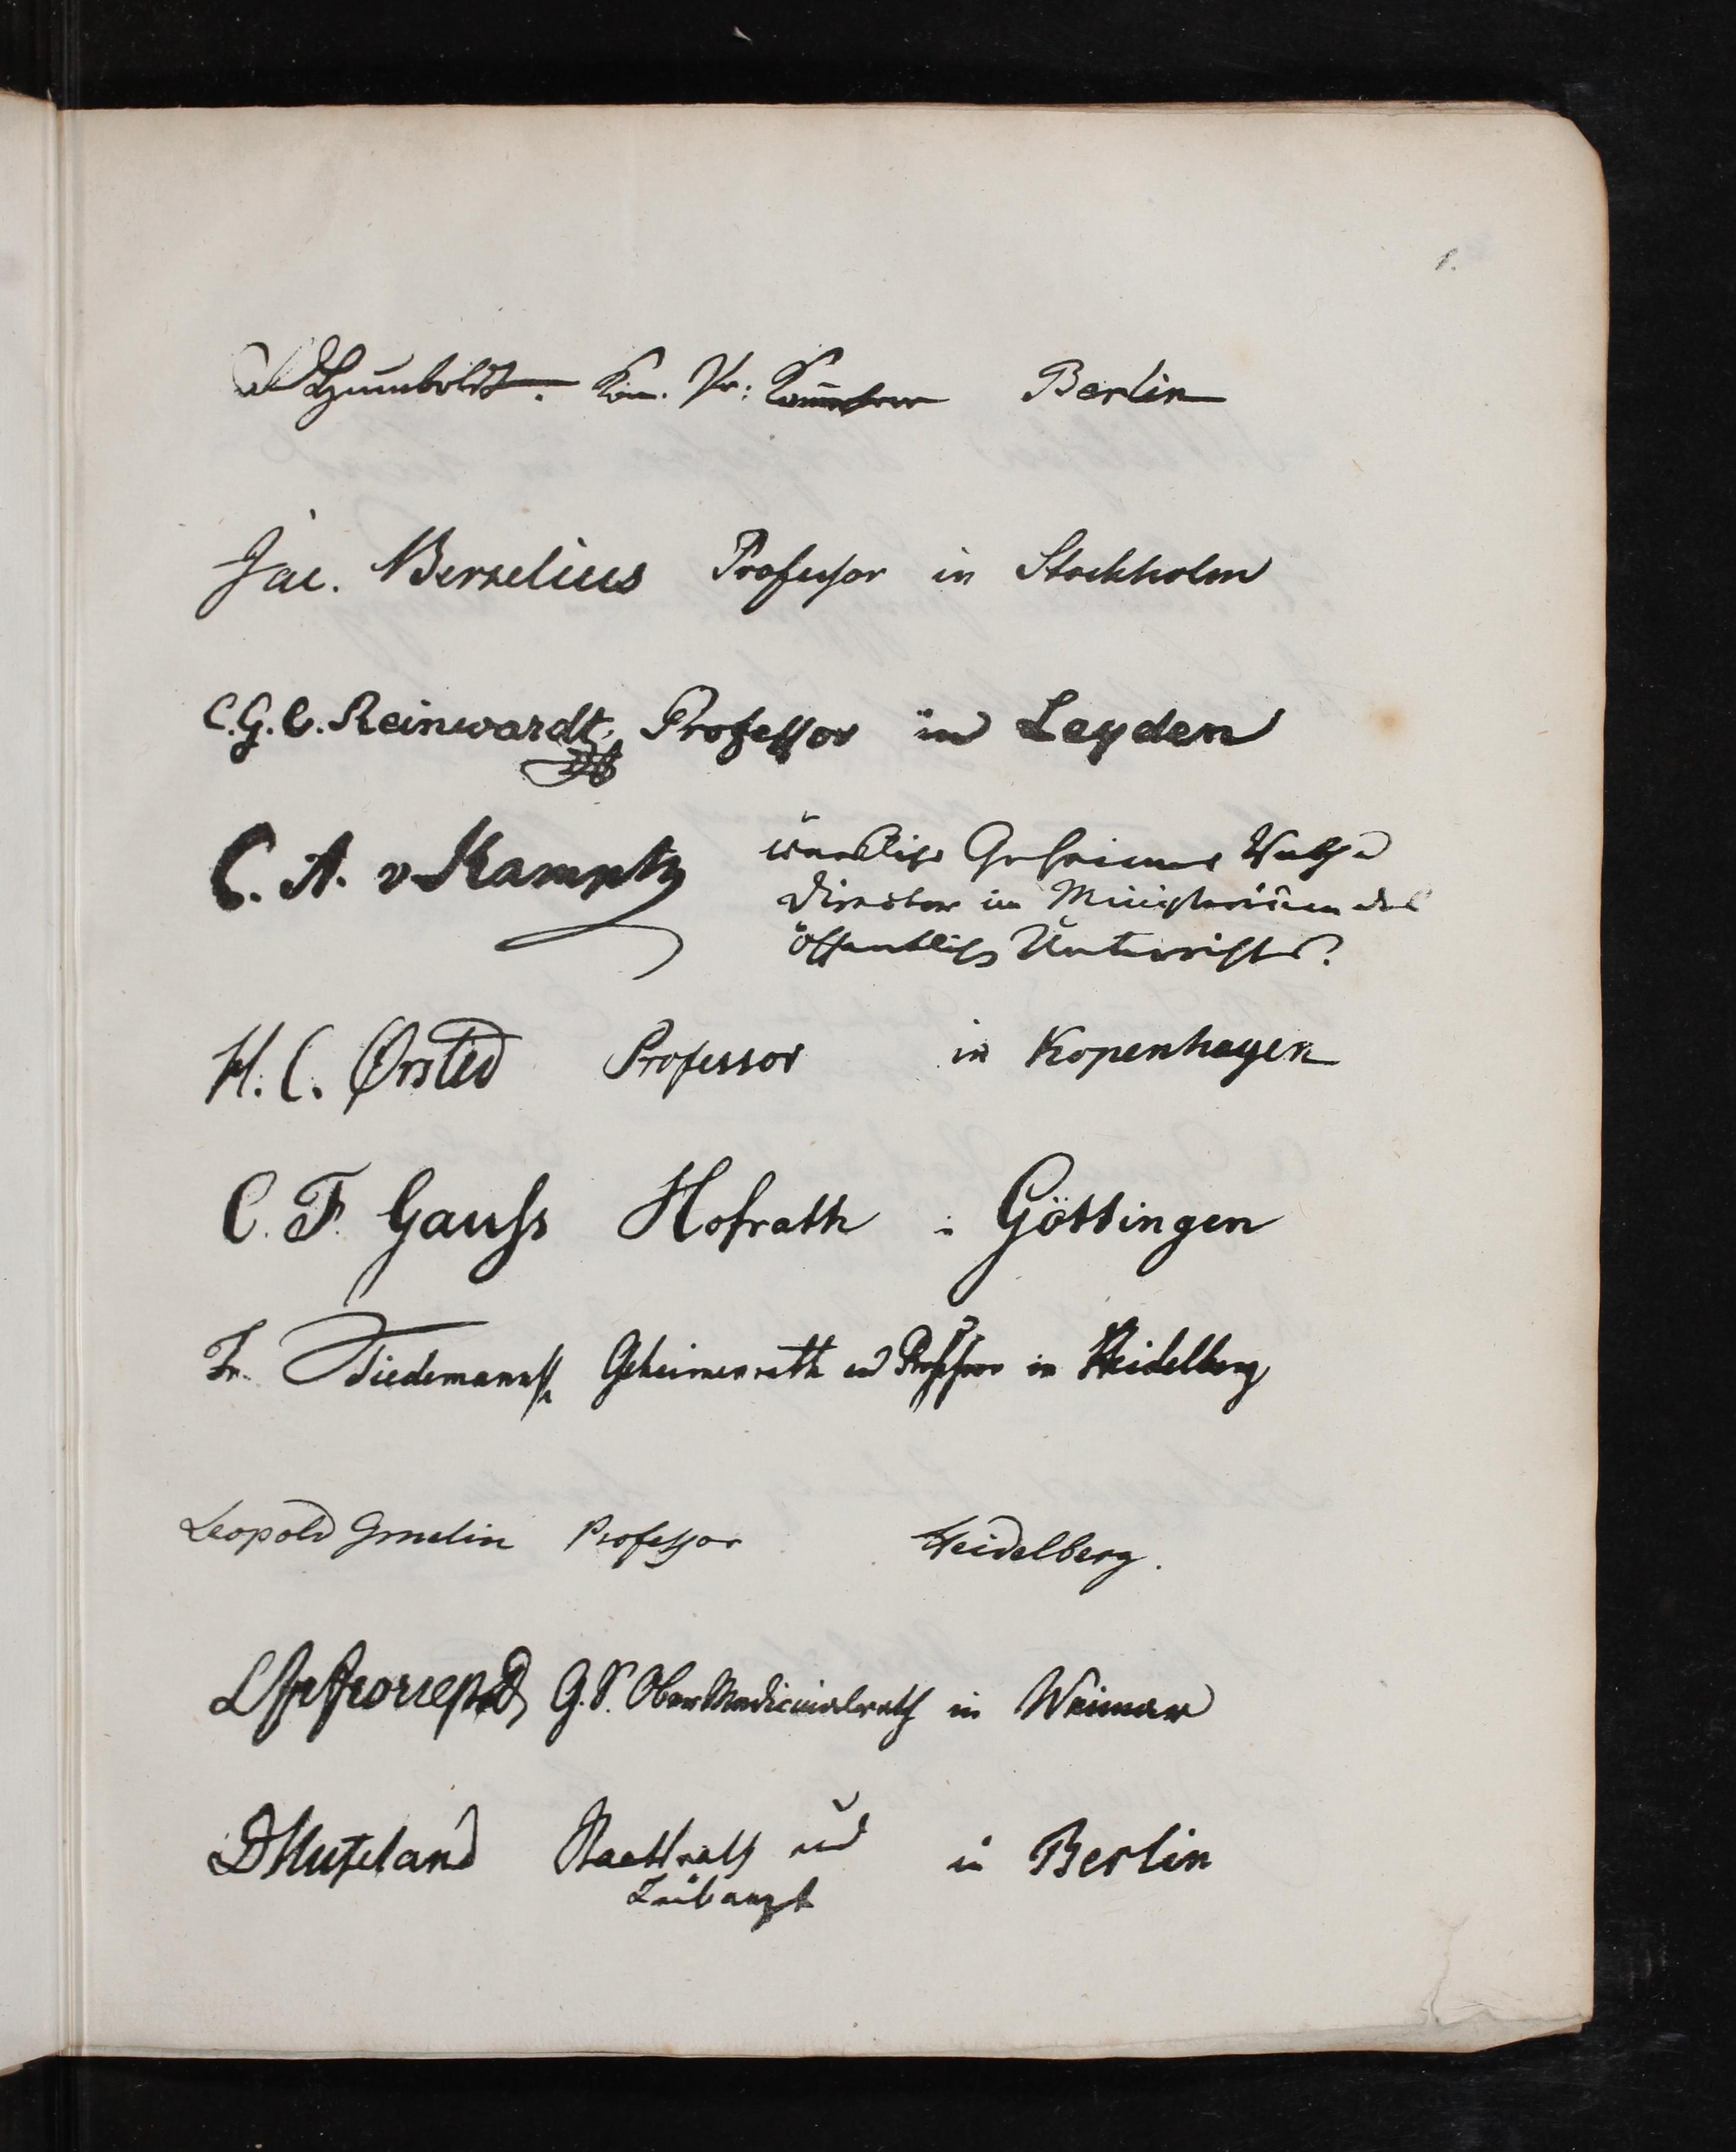 1.
AlHumboldt. Kön. Pr: Kammerherr Berlin
Jac. Berzelius Professor in Stockholm
C. G. C. Reinwardt, Professor in Leyden
C. A. v Kamptz würklicher Geheimer Rath u
Director im Ministerium des
öffentlichs Unterrichts.
H. C. Ørsted Professor in Kopenhagen
C. F. Gauss Hofrath in Göttingen
Fr. Tiedemann Geheimerath und Professor in Heidelberg
Leopold Gmelin Professor Heidelberg.
Froriep G. S. OberMedicinalrath in Weimar
D Hufeland Staatsrath und in Berlin
Leibarzt